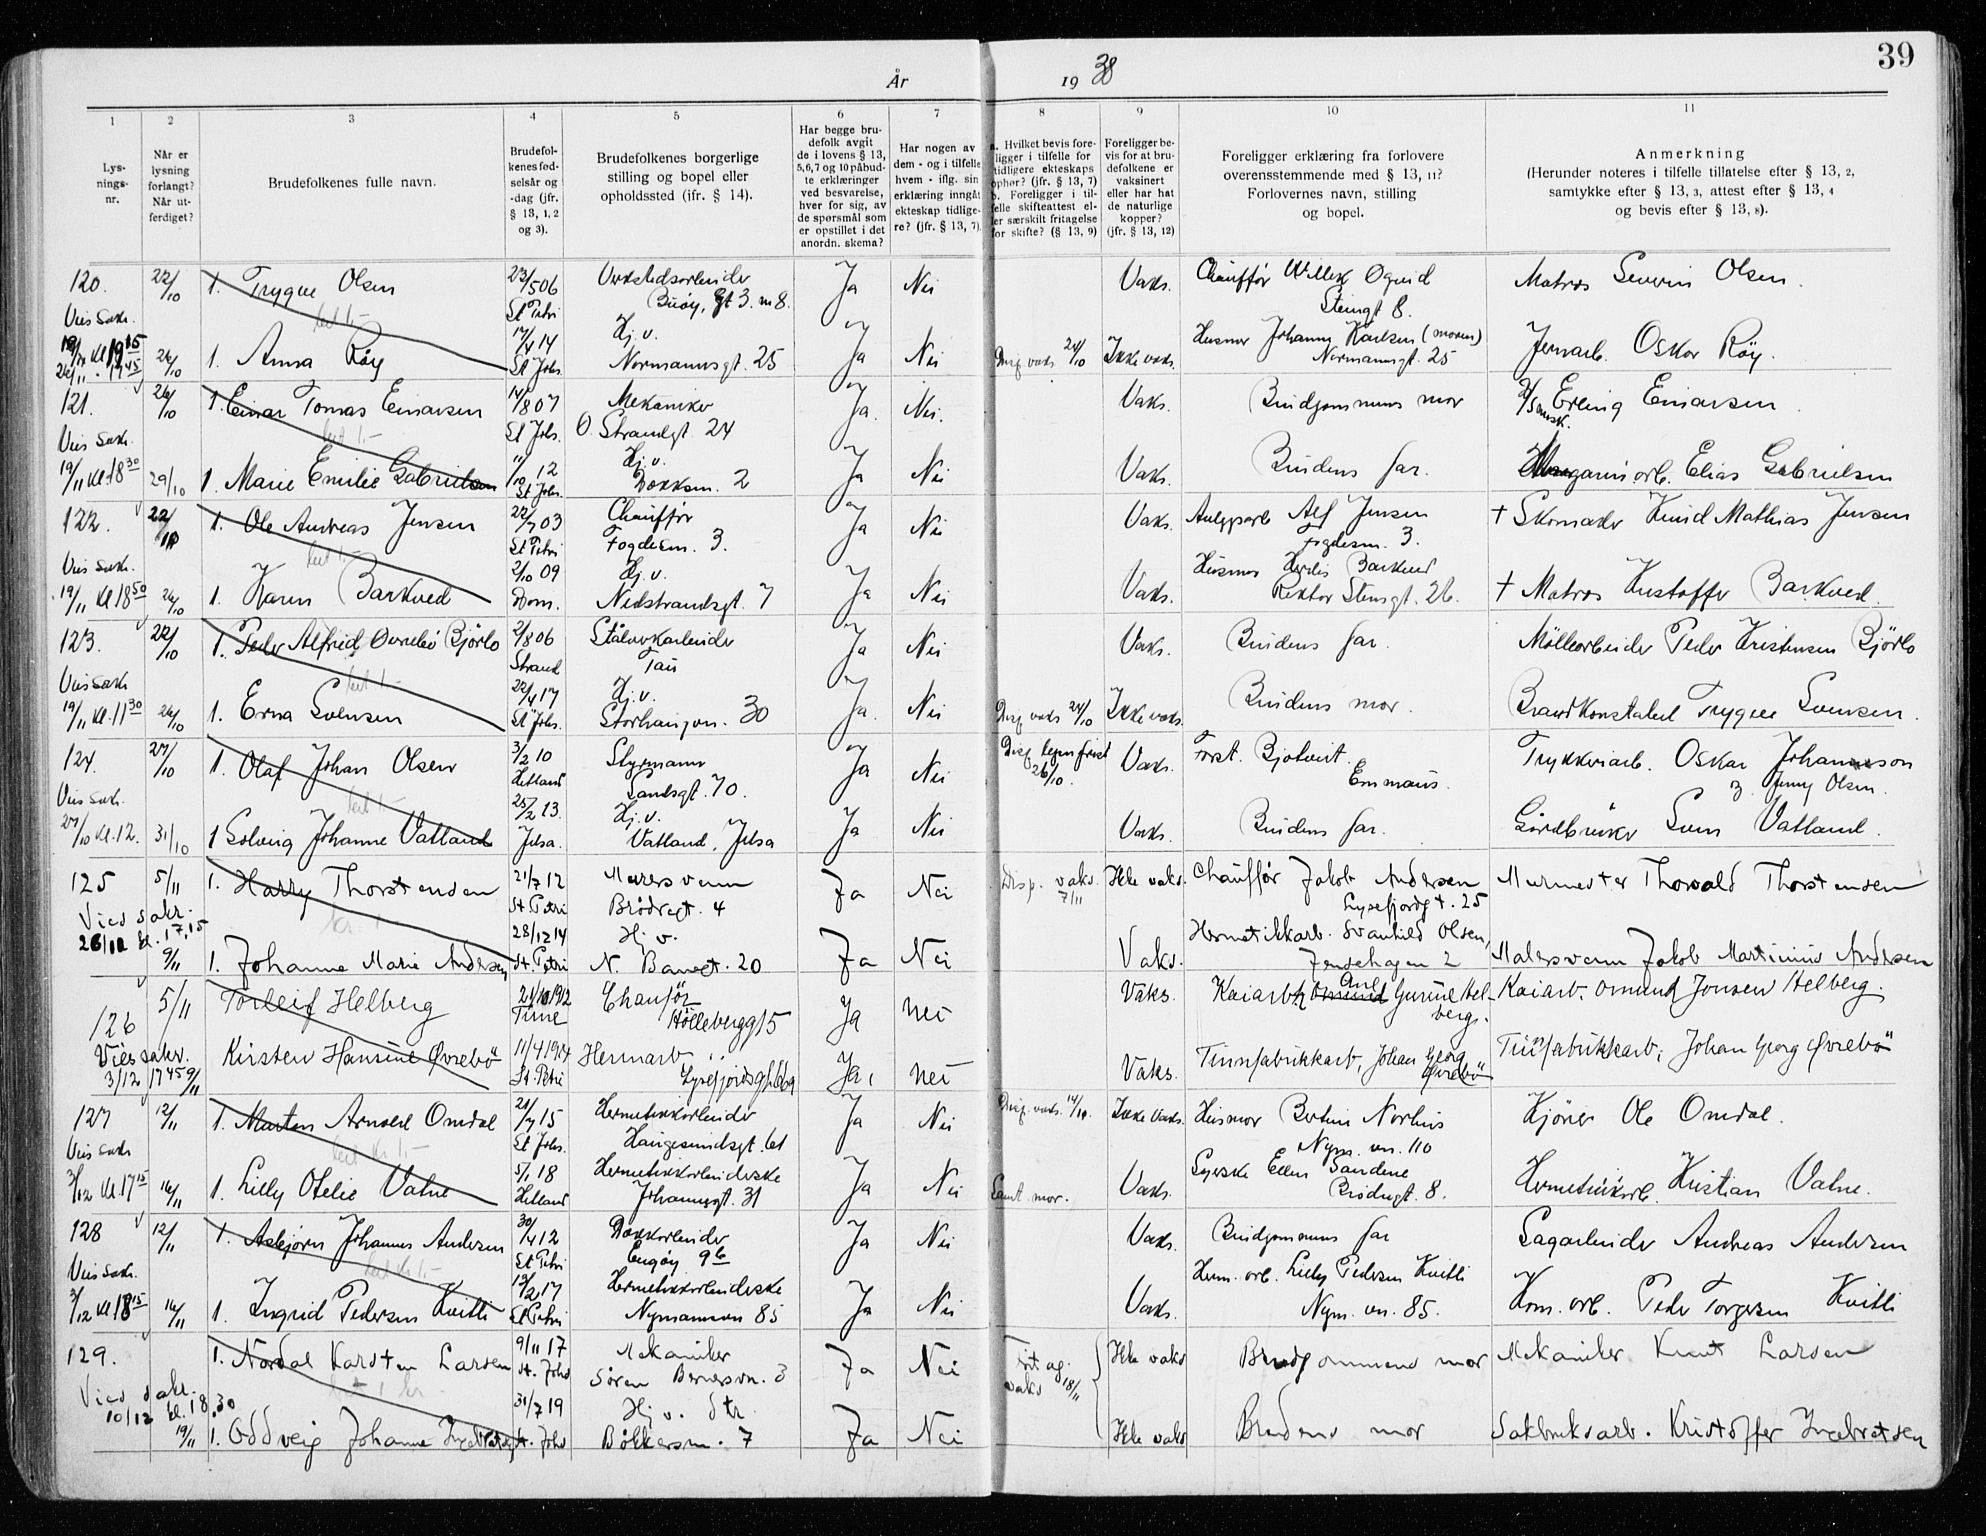 39
År 1938
1 2 3 4 5 6 7 8 9 10 11
Lys-
nings-
nr.
Når er
lysning
forlangt?
Når ut-
ferdiget?
Brudefolkenes fulle navn.
Brudefol-
kenes fød-
selsår og
-dag (jfr.
§ 13, 1, 2
og 3).
Brudefolkenes borgerlige
stilling og bopel eller
opholdssted (jfr. § 14).
Har begge bru-
defolk avgit
de i lovens § 13,
5,6,7 og 10 påbud-
te erklæringer
ved besvarelse,
hver for sig, av
de spørsmål som
er opstillet i det
anordn. skema?
Har nogen av
dem - og i tilfelle
hvem - iflg. sin
erklæring inngåt
ekteskap tidlige-
re? (jfr. § 13, 7)
a. Hvilket bevis fore-
ligger i tilfelle for
tidligere ekteskaps
ophør? (jfr. § 13, 7)
b. Foreligger i til-
felle skifteattest el-
er særskilt fritagelse
for skifte? (§ 13, 9)
Foreligger be-
vis for at bru-
defolkene er
vaksinert
eller har hat
de naturlige
kopper?
(jfr. § 13, 12)
Foreligger erklæring fra forlovere
overensstemmende med § 13, 11?
Forlovernes navn, stilling
og bopel.
Anmerkning
(Herunder noteres i tilfelle tillatelse efter § 13, 2,
samtykke efter § 13, 3, attest efter § 13, 4
og bevis efter § 13, 8).
120. 22/10 1. Trygve Olsen 23/5 06 Verkstedsarbeider Ja Nei Vaks. Chauffør Matros Severin Olsen.
St Petri Buøy, gt 3. n 8. Steingt 8.
Vies sakr. 17/4 14 Hj.v. Husmor Johanna Karlsen (moren)
kl 19 15 26/10 1. Anna Røy St Johs. Normannsgt. 25 Ja Nei Disp. vaks 24/10 Ikke vaks. Normannsgt. 25 Jernarb. Oskar Røy.
121. 26/10 1. Einar Tomas Einarsen 14/8 07 Mekaniker Ja. Nei. Vaks. Brudgommens mor Erling Einarsen
St Johs. O. Strandgt. 24
Vies sakr. 11/10 12 Hj.v.
19/11 kl. 18 30 29/10 1. Marie Emilie Gabrielsen St Johs. Bakkem. 2 Ja Nei Vaks. Brudens far. Magasinarb. Elias Gabrielsen
122. 22/10 1. Ole Andreas Jensen 22/7 03 Chauffør Ja Nei Vaks. Alf Jensen + Skomaker Knud Mathias Jensen
St Petri Fogdesm. 3. Fogdesm. 3.
Vies sakr. 2/10 09 Hj.v. Husmor Herdis Barkved
19/11 kl 18 50 26/10 1. Karen Barkved Dom. Nedstrandsgt. 7 Ja Nei Vaks. Rektor Stensgt. 26. + Matros Kristoffer Barkved.
123. 22/10 1. Peder Alfred Ovrebø Bjørlo 2/8 06 Stålverkarbeider Ja Nei Vaks. Brudens far. Møllearbeider Peder Kristensen Bjørlo
Strand Tau
Vies sakr 22/4 17 Hj.v.
19/11 kl. 11 30 26/10 1. Erna Svensen St Johs. Storhaugvn. 30 Ja. Nei Disp vaks 24/10 Ikke vaks. Brudens mor. Brandkonstabel Trygve Svensen.
124. 27/10 1. Olaf Johan Olsen 3/2 10 Styrmann Ja Nei Disp lysn frist 26/10. Vaks. Forst. Bjotveit. Trykkeriarb. Oskar Johannesson
Hetland Sandsgt. 70. Emmaus. Jenny Olsen.
Vies sakr. 25/2 13. Hj.v.
27/10 kl. 12. 31/10 1 Solveig Johanne Vatland Jelsa. Vatland, Jelsa Ja Nei Vaks. Brudens far. Gårdbruker Sven Vatland.
125 5/11 1. Harry Thorstensen 21/7 12 Murersvenn Ja Nei Disp. vaks. 7/11 Ikke vaks. Chauffør Jakob Andersen Murmester Thorvald Thorstensen
St. Petri Brødregt. 4 Lysefjordgt. 25
Vies sakr. 28/12 14 Hj v. Hermetikkarb. Svanhild Olsen,
26/12 kl. 17,15 9/11 1. Johanne Marie Andersen St. Petri N. Banegt. 20 Ja Nei Vaks. Jensehagen 2 Malersvenn Jakob Martinius Andersen
126 5/11 Torleif Helberg 21/10 1912 Chaufør Ja nei Vaks. Kaiarb. Gurine Helberg. Kaiarb. Omund Jonsen Helberg.
Time Hollebergg 15
Vies sakr. Kirsten Hansine Øvrebø 11/4 1914 Hermarb Tinnfabrikkarb, Johan Georg Tinnfabrikkarb; Johan Georg Øvrebø
3/12 17 45 9/11 St. Petri Lysefjordsgt. Ja, nei Vaks. Øvrebø
127 12/11 1. Marton Arnold Omdal 21/7 15 Hermetikkarbeider Ja Nei Disp. vaks. Ikke vaks. Husmor Bertin Norhus Kjører Ole Omdal.
St Johs. Haugesundsgt. 61 Nym. vn. 110
Vies sakr 5/1 18 Hermetikkarbeiderske Syerske Ellen Sandene
3/12 kl. 17 15 16/11 1. Lilly Otelie Valne Hetland Johannesgt. 31 Ja Nei Samt. mor. Vaks. Brødregt. 8. Hermetikkarb. Kristian Valne.
128 12/11 1. Asbjørn Johannes Andersen 30/4 12 Dokkarbeider Ja Nei Vaks. Brudgommens far Sagarbeider Andreas Andersen
St Petri Engøy 96
Vies sakr. 13/2 17 Hermetikkarbeiderske Herm. arb. Lilly Pedersen Kvitli
3/12 kl 18 15 16/11 1. Ingrid Pedersen Kvitli St Petri Nymansvn 85 Ja Nei Vaks. Nym. vn. 85. Kom. arb. Peder Torgersen Kvitli
129. 1. Nordal Karsten Larsen 9/11 17 Mekaniker Ja Nei Frit ag. vaks 18/11 Ikke vaks Brudgommens mor Mekaniker Knut Larsen
St. Johs Søren Bernersvn. 3
Vies sakr. 31/7 19 Hj v. dtr
10/12 kl. 18.30 19/11 1. Oddveig Johanne Ingebretsen St. Johs Bøkkersm. 7 Ja Nei Ikke vaks Brudens mor Sakbruksarb. Kristoffer Ingebretsen